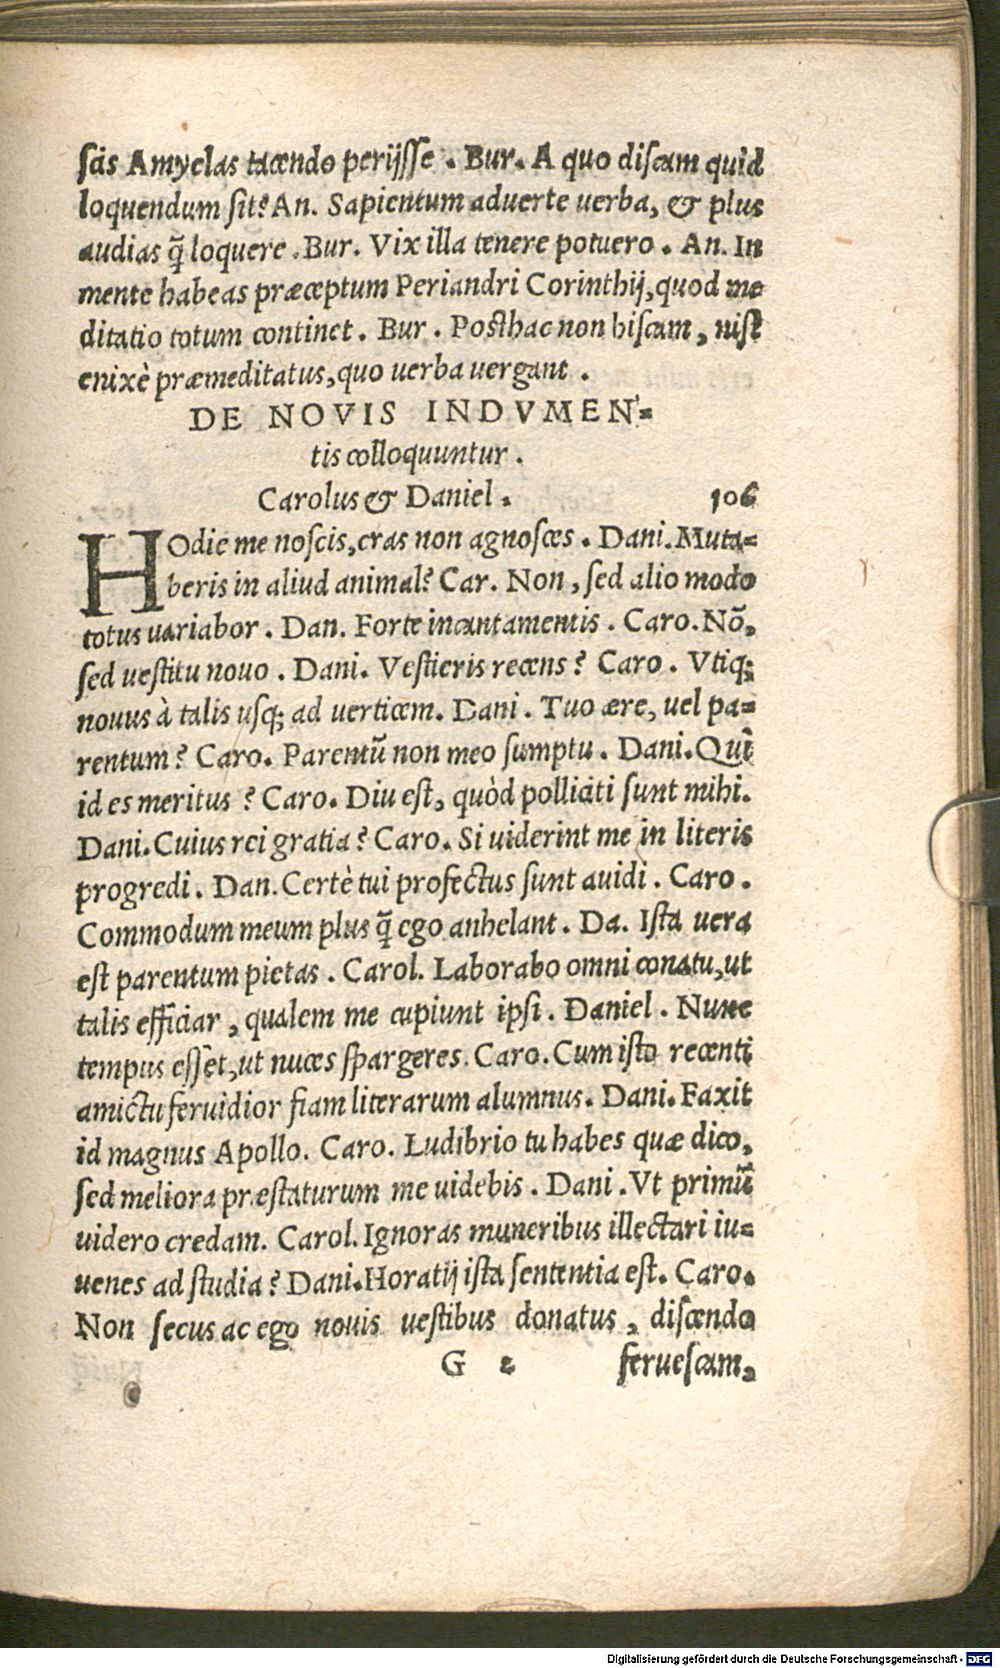 scis Amyclas tacendo perijsse . Bur. A quo discam quid
loquendum sit? An. Sapientum aduerte uerba, & plus
audias q̃ loquere . Bur. Vix illa tenere potuero . An. In
mente habeas præceptum Periandri Corinthij, quod me
ditatio totum continet . Bur . Posthac non hiscam , nisi
enixè præmeditatus, quo uerba uergant .
DE NOVIS INDVMEN-
tis colloquuntur .
Carolus & Daniel . 106
HOdie me noscis, cras non agnosces . Dani. Muta-
beris in aliud animal? Car. Non , sed alio modo
totus uariabor . Dan. Forte incantamentis . Caro. Nõ,
sed vestitu nouo . Dani. Vestieris recens ? Caro . Vtiq;
nouus à talis usq; ad uerticem. Dani . Tuo ære, uel pa-
rentum ? Caro. Parentũ non meo sumptu . Dani. Quî
id es meritus ? Caro. Diu est, quòd polliciti sunt mihi.
Dani. Cuius rei gratia ? Caro. Si uiderint me in literis
progredi . Dan. Certè tui profectus sunt auidi . Caro .
Commodum meum plus q̃ ego anhelant . Da. Ista uera
est parentum pietas . Carol. Laborabo omni conatu, ut
talis efficiar , qualem me cupiunt ipsi . Daniel . Nunc
tempus essèt, ut nuces spargeres. Caro. Cum isto recenti
amictu feruidior fiam literarum alumnus. Dani. Faxit
id magnus Apollo. Caro. Ludibrio tu habes quæ dico,
sed meliora præstaturum me uidebis . Dani . Vt primũ
uidero credam. Carol. Ignoras muneribus illectari iu-
uenes ad studia ? Dani. Horatij ista sententia est. Caro.
Non secus ac ego nouis uestibus donatus , discendo
G 2 feruescam,
Digitalisierung gefördert durch die Deutsche Forschungsgemeinschaft - DFG